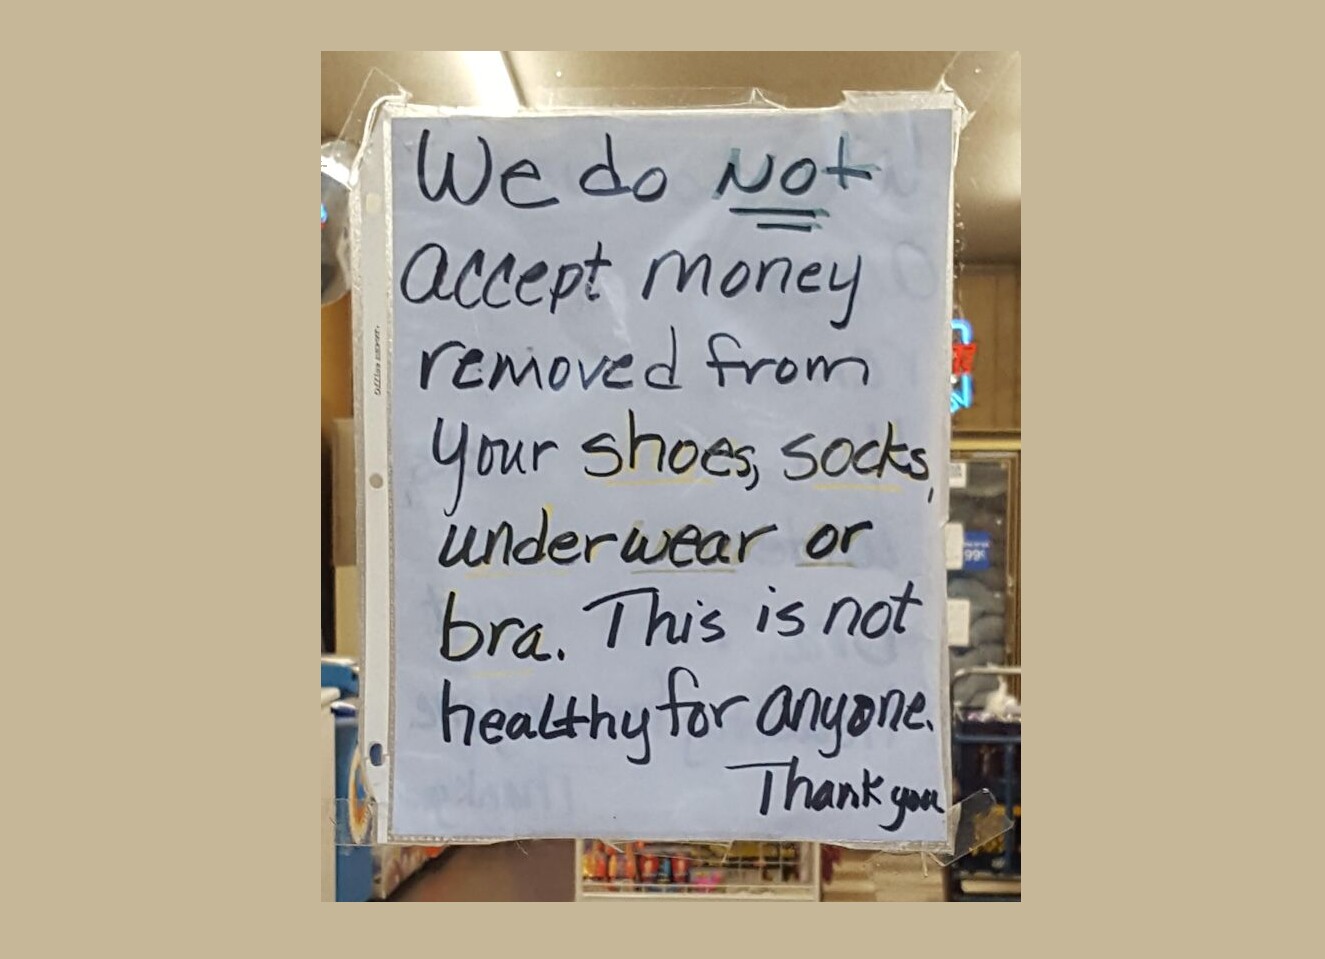 We do NOt
accept money
removed from
your shoes, socks,
underwear or
bra. This is not
healthy for anyone.
Thank you